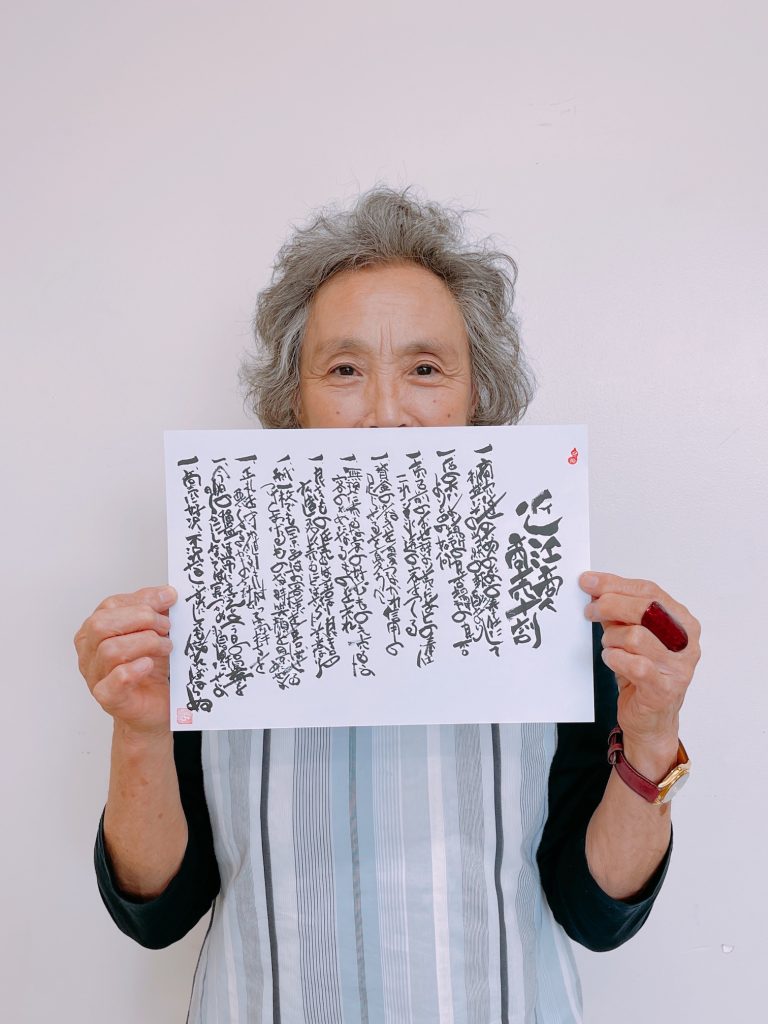 近江商人
商売十訓
一 商売は世の為人の為の奉仕にして
利益はその当然の報酬なり
一 店の大小よりも場所の良否
場所の良否よりも品の如何
一 売る前のお世辞より売った後の奉仕
これこそ永遠の客を作る
一 資金の少なきを憂うなかれ 信用の
足らざるを憂うべし
一 無理に売るな 客の好むものも売るな
客のためになるものを売れ
一 良きものを売るは善なり 良き品の
広告して多く売ることは
一 紙一枚でも景品はお客を喜ばせる
つけてあげるもののない時笑顔を景品にせよ
一 正札を守れ 値引きは却って気持ちを
悪くするくらいが落ちだ
一 今日の損益を常に考えよ 今日の損益を
明らかにしないで寝につかぬ習慣にせよ
一 商売に好況 不況なし いずれにしても儲けねばならぬ